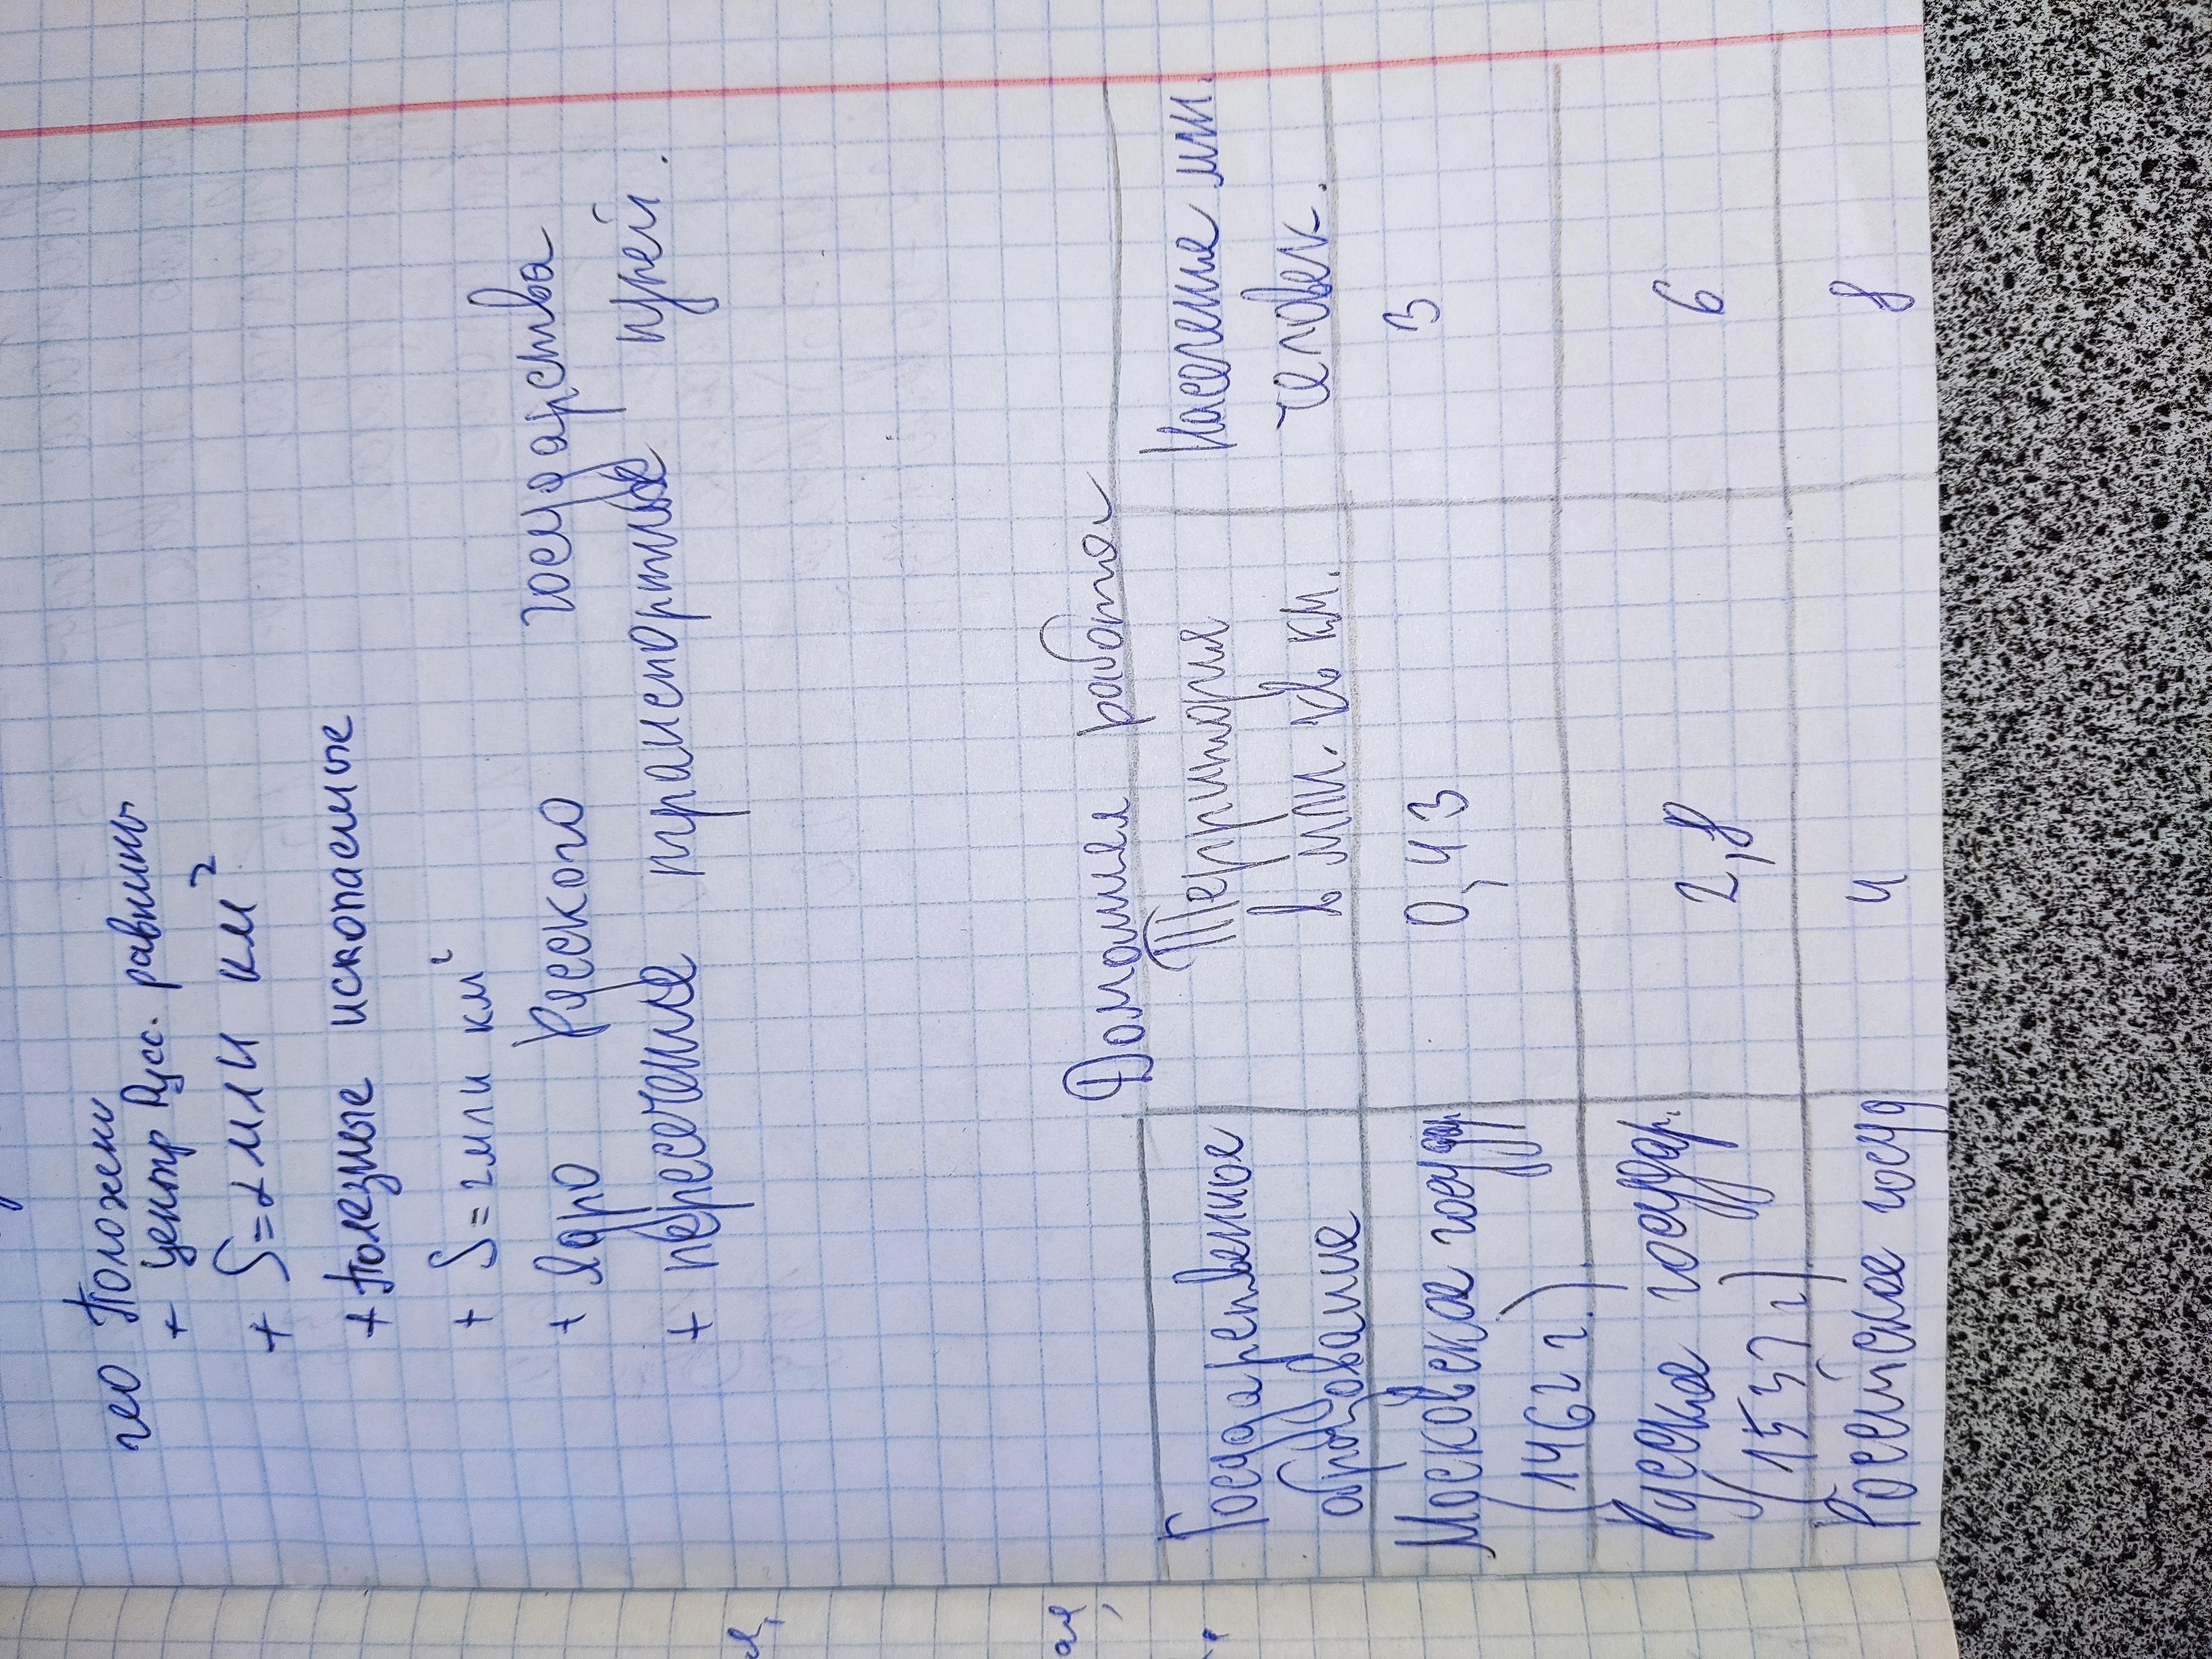 гео Положени
+ центр Русс. равнины
+ S=2 млн км²
+ Полезные ископаемые
+ S=2млн км²
+ Ядро Русского государства
+ пересечение транспортных путей.
Домашняя работа
Государственное образование
Территория в млн. кв км.
Население млн. человек.
Московское государ (1462 г.)
0,43
3
Русское государ. (1533 г)
2,8
6
Российское госуд
4
8